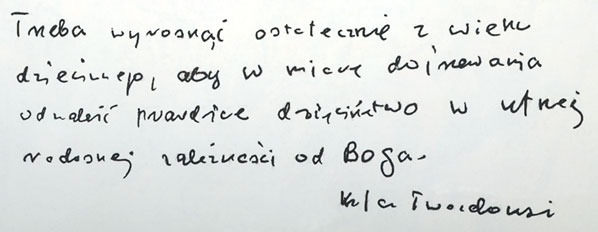 Trzeba wyrosnąć ostatecznie z wieku
dziecinnego, aby w miarę dojrzewania
odnaleźć prawdziwe dzieciństwo w ufnej
radosnej zależności od Boga.
Twardowski